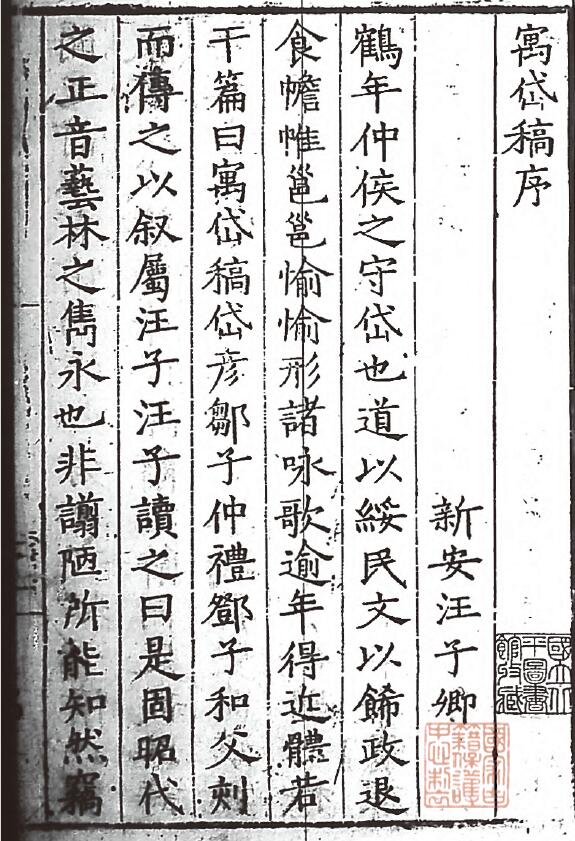 寓岱稿序
新安汪子卿
鶴年仲侯之守岱也道以綏民文以餙政退
食幨帷邕邕愉愉形諸咏歌逾年得近體若
干篇曰寓岱稿岱彥鄒子仲禮鄧子和父刻
而傳之以叙屬汪子汪子讀之曰是固昭代
之正音藝林之雋永也非謭陋所能知然竊
國立北
平圖書
館收藏